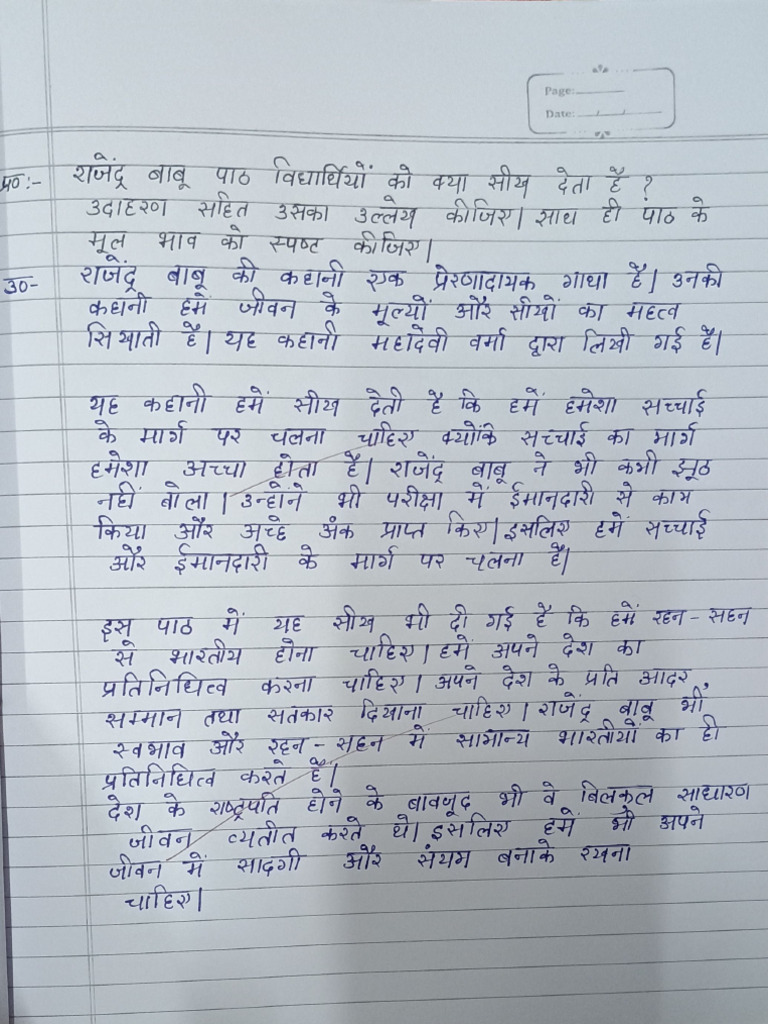 Page:
Date: / /
प्र०:- राजेंद्र बाबू पाठ विद्यार्थियों को क्या सीख देता है ?
उदाहरण सहित उसका उल्लेख कीजिए। साथ ही पाठ के
मूल भाव को स्पष्ट कीजिए।
उ०- राजेंद्र बाबू की कहानी एक प्रेरणादायक गाथा है। उनकी
कहानी हमें जीवन के मूल्यों और सीखों का महत्व
सिखाती है। यह कहानी महादेवी वर्मा द्वारा लिखी गई है।
यह कहानी हमें सीख देती है कि हमें हमेशा सच्चाई
के मार्ग पर चलना चाहिए क्योंकि सच्चाई का मार्ग
हमेशा अच्चा होता है। राजेंद्र बाबू ने भी कभी झूठ
नहीं बोला। उन्होंने भी परीक्षा में ईमानदारी से काम
किया और अच्छे अंक प्राप्त किए। इसलिए हमें सच्चाई
और ईमानदारी के मार्ग पर चलना है।
इस पाठ में यह सीख भी दी गई है कि हमें रहन-सहन
से भारतीय होना चाहिए। हमें अपने देश का
प्रतिनिधित्व करना चाहिए। अपने देश के प्रति आदर,
सम्मान तथा सतकार दियाना चाहिए। राजेंद्र बाबू भी
स्वभाव और रहन-सहन में सामान्य भारतीयों का ही
प्रतिनिधित्व करते हैं।
देश के राष्ट्रपति होने के बावजूद भी वे बिलकुल साधारण
जीवन व्यतीत करते थे। इसलिए हमें भी अपने
जीवन में सादगी और संयम बनाके रखना
चाहिए।